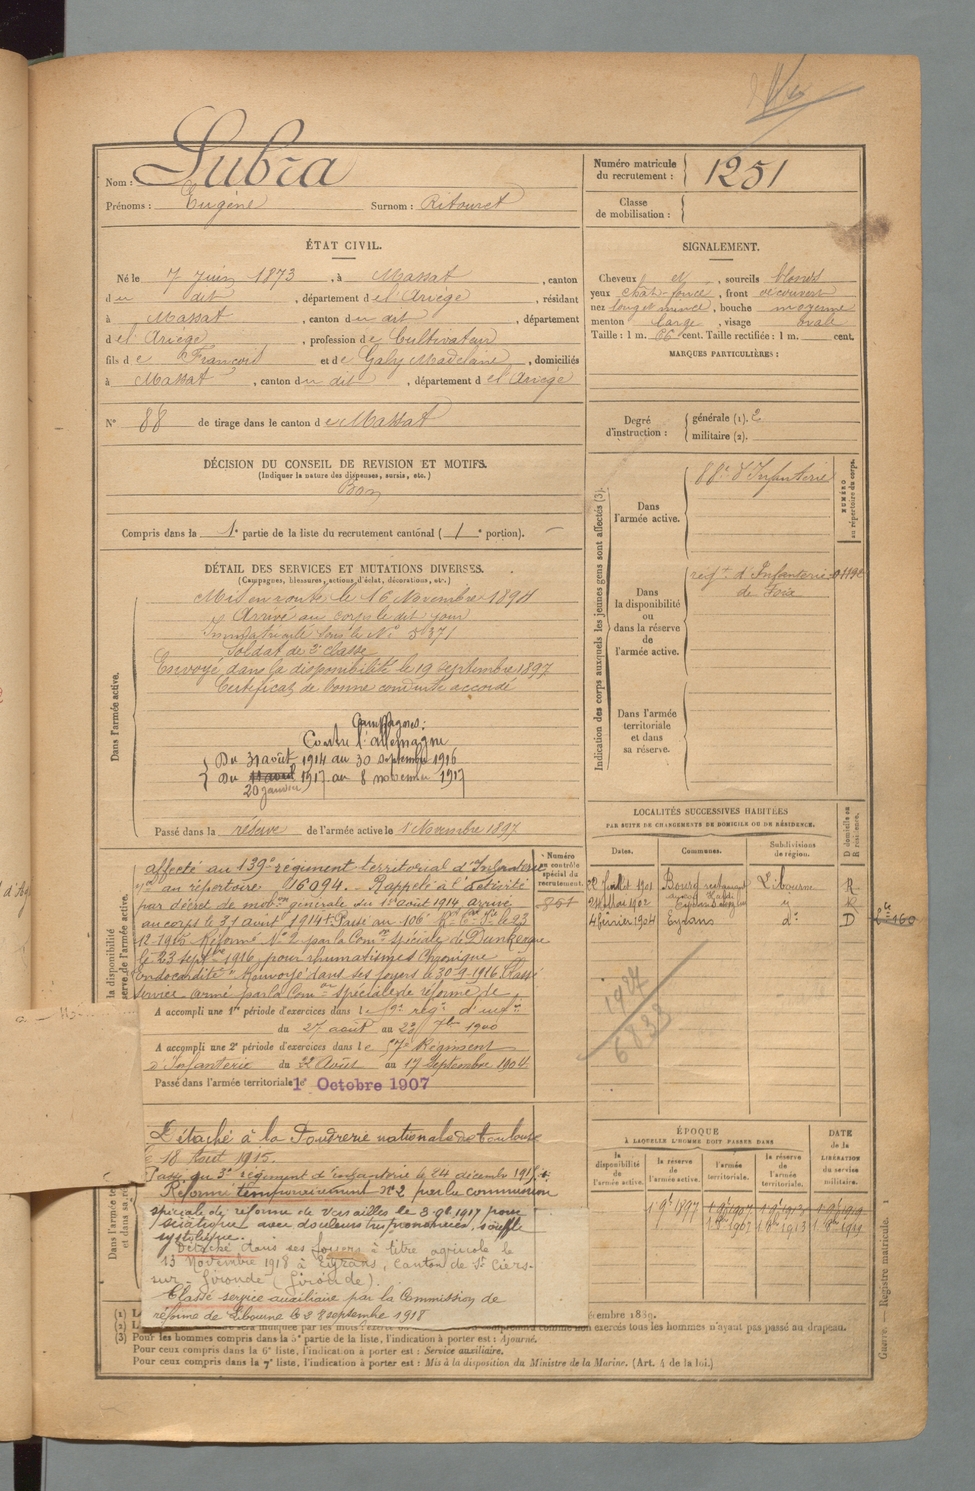 Nom : Lubra
Prénoms : Eugène Surnom : Ritouret
Numéro matricule du recrutement : 1251
Classe de mobilisation :
ÉTAT CIVIL.
Né le 7 Juin 1873, à Massat, canton
du dit, département de l'Ariège, résidant
à Massat, canton du dit, département
de l'Ariège, profession de Cultivateur
fils de François et de Galy Madelaine, domiciliés
à Massat, canton du dit, département de l'Ariège
N° 88 de tirage dans le canton de Massat
SIGNALEMENT.
Cheveux et, sourcils blonds
yeux chat. foncé, front découvert
nez long et mince, bouche moyenne
menton large, visage ovale
Taille : 1 m. 66 cent. Taille rectifiée : 1 m. cent.
MARQUES PARTICULIÈRES :
Degré d'instruction : générale (1). 2
militaire (2).
DÉCISION DU CONSEIL DE REVISION ET MOTIFS.
(Indiquer la nature des dispenses, sursis, etc.)
Bon
Compris dans la 1e partie de la liste du recrutement cantonal (1e portion).
DÉTAIL DES SERVICES ET MUTATIONS DIVERSES.
(Campagnes, blessures, actions d'éclat, décorations, etc.)
Dans l'armée active.
Mis en route le 16 Novembre 1894
Arrivé au corps le dit jour
Immatriculé sous le N°
Soldat de 2e classe
Envoyé dans la disponibilité le 19 Septembre 1897
Certificat de bonne conduite accordé
Campagnes :
Contre l'allemagne
Du 31 août 1914 au 30 septembre 1916
Du 11 avril 1917 au 8 novembre 1917
20 janvier
Passé dans la réserve de l'armée active le 1 Novembre 1897
Indication des corps auxquels les jeunes gens sont affectés (3).
NUMÉRO au répertoire du corps.
Dans l'armée active. 88e d'Infanterie
Dans la disponibilité ou dans la réserve de l'armée active. régt d'Infanterie
de Foix
Dans l'armée territoriale et dans sa réserve.
LOCALITÉS SUCCESSIVES HABITÉES
PAR SUITE DE CHANGEMENTS DE DOMICILE OU DE RÉSIDENCE.
Dates. Communes. Subdivisions de région. D domicile ou R résidence.
22 Juillet 1901 Bourg Libourne R
24 Mai 1902 R
4 février 1904 Eyrans do D
1927
6833
Numéro au contrôle spécial du recrutement.
affecté au 139e régiment territorial d'Infanterie
au répertoire 16094. Rappelé à l'activité
par décret de mobon générale du 1er août 1914, arrivé
au corps le 31 août 1914. Passé au 106e le 23
12-1915 Réformé N° 2 par la Comon spéciale de Dunkerque
le 23 septbre 1916, pour rhumatismes chronique
endocardite. Renvoyé dans ses foyers le 30-9-1916. Classé
service armé par la Comon spéciale de réforme de
A accompli une 1re période d'exercices dans le régt d'inf
du 27 août au 23 7bre 1900
A accompli une 2e période d'exercices dans le 57e Régiment
d'Infanterie du 22 Août au 17 Septembre 1904
Passé dans l'armée territoriale le 1er Octobre 1907
Détaché à la Poudrerie nationale de Toulouse
le 18 Août 1915.
Passé au 3e régiment d'infanterie le 24 décembre 1915
Réformé temporairement N°2 par la commission
spéciale de réforme de Versailles le 3-9bre 1917 pour
sciatique avec douleurs très prononcées, souffle
systolique.
Détaché dans ses foyers à titre agricole le
13 Novembre 1918 à Eyrans, Canton de St Ciers-
sur-Gironde (Gironde).
Classé service auxiliaire par la Commission de
réforme de Libourne le 28 septembre 1918
ÉPOQUE
À LAQUELLE L'HOMME DOIT PASSER DANS
la disponibilité de l'armée active. la réserve de l'armée active. l'armée territoriale. la réserve de l'armée territoriale. DATE de la LIBÉRATION du service militaire.
1 9bre 1897 1 9bre 1907 1 9bre 1913 1 9bre 1919
1 8bre 1907 1 8bre 1913 1 8bre 1919
(3) Pour les hommes compris dans la 5e partie de la liste, l'indication à porter est : Ajourné.
Pour ceux compris dans la 6e liste, l'indication à porter est : Service auxiliaire.
Pour ceux compris dans la 7e liste, l'indication à porter est : Mis à la disposition du Ministre de la Marine. (Art. 4 de la loi.)
Guerre. — Registre matricule. 1